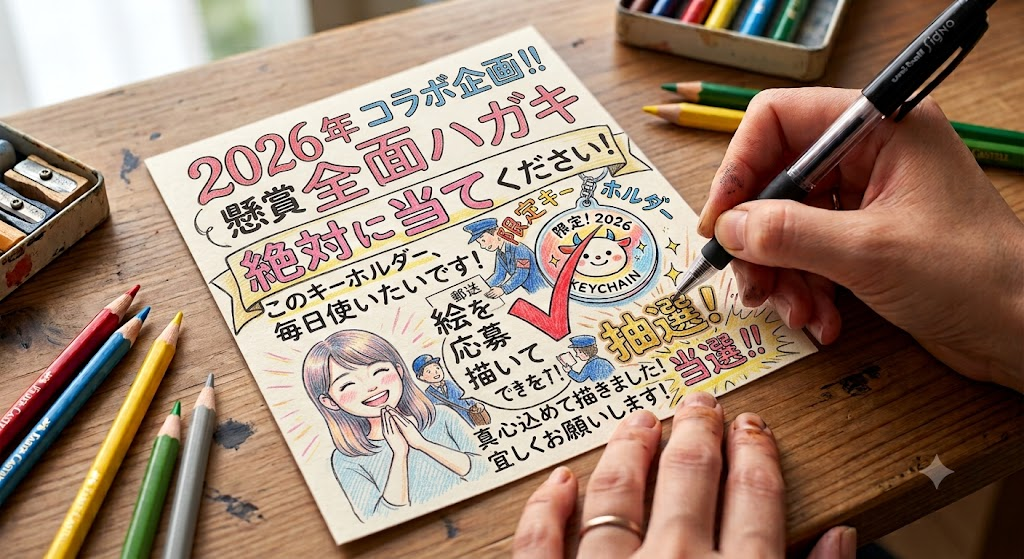 2026年 コラボ企画!!
懸賞 全面ハガキ
絶対に当てください!
限定キーホルダー
このキーホルダー、
毎日使いたいです!
限定! 2026
KEYCHAIN
郵送
絵を
応募
描いて
できを
抽選!
当選!!
真心込めて描きました!
宜しくお願いします!
uni-ball Signo